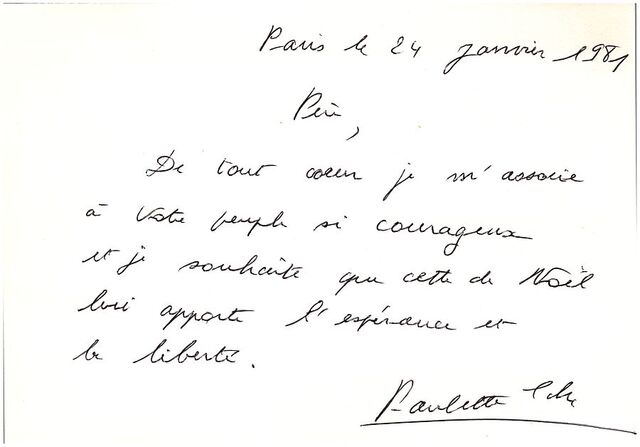 Paris le 24 janvier 1981
Père,
De tout coeur je m'associe
à votre peuple si courageux
et je souhaite que cette de Noël
lui apporte l'espérance et
la liberté.
Paulette